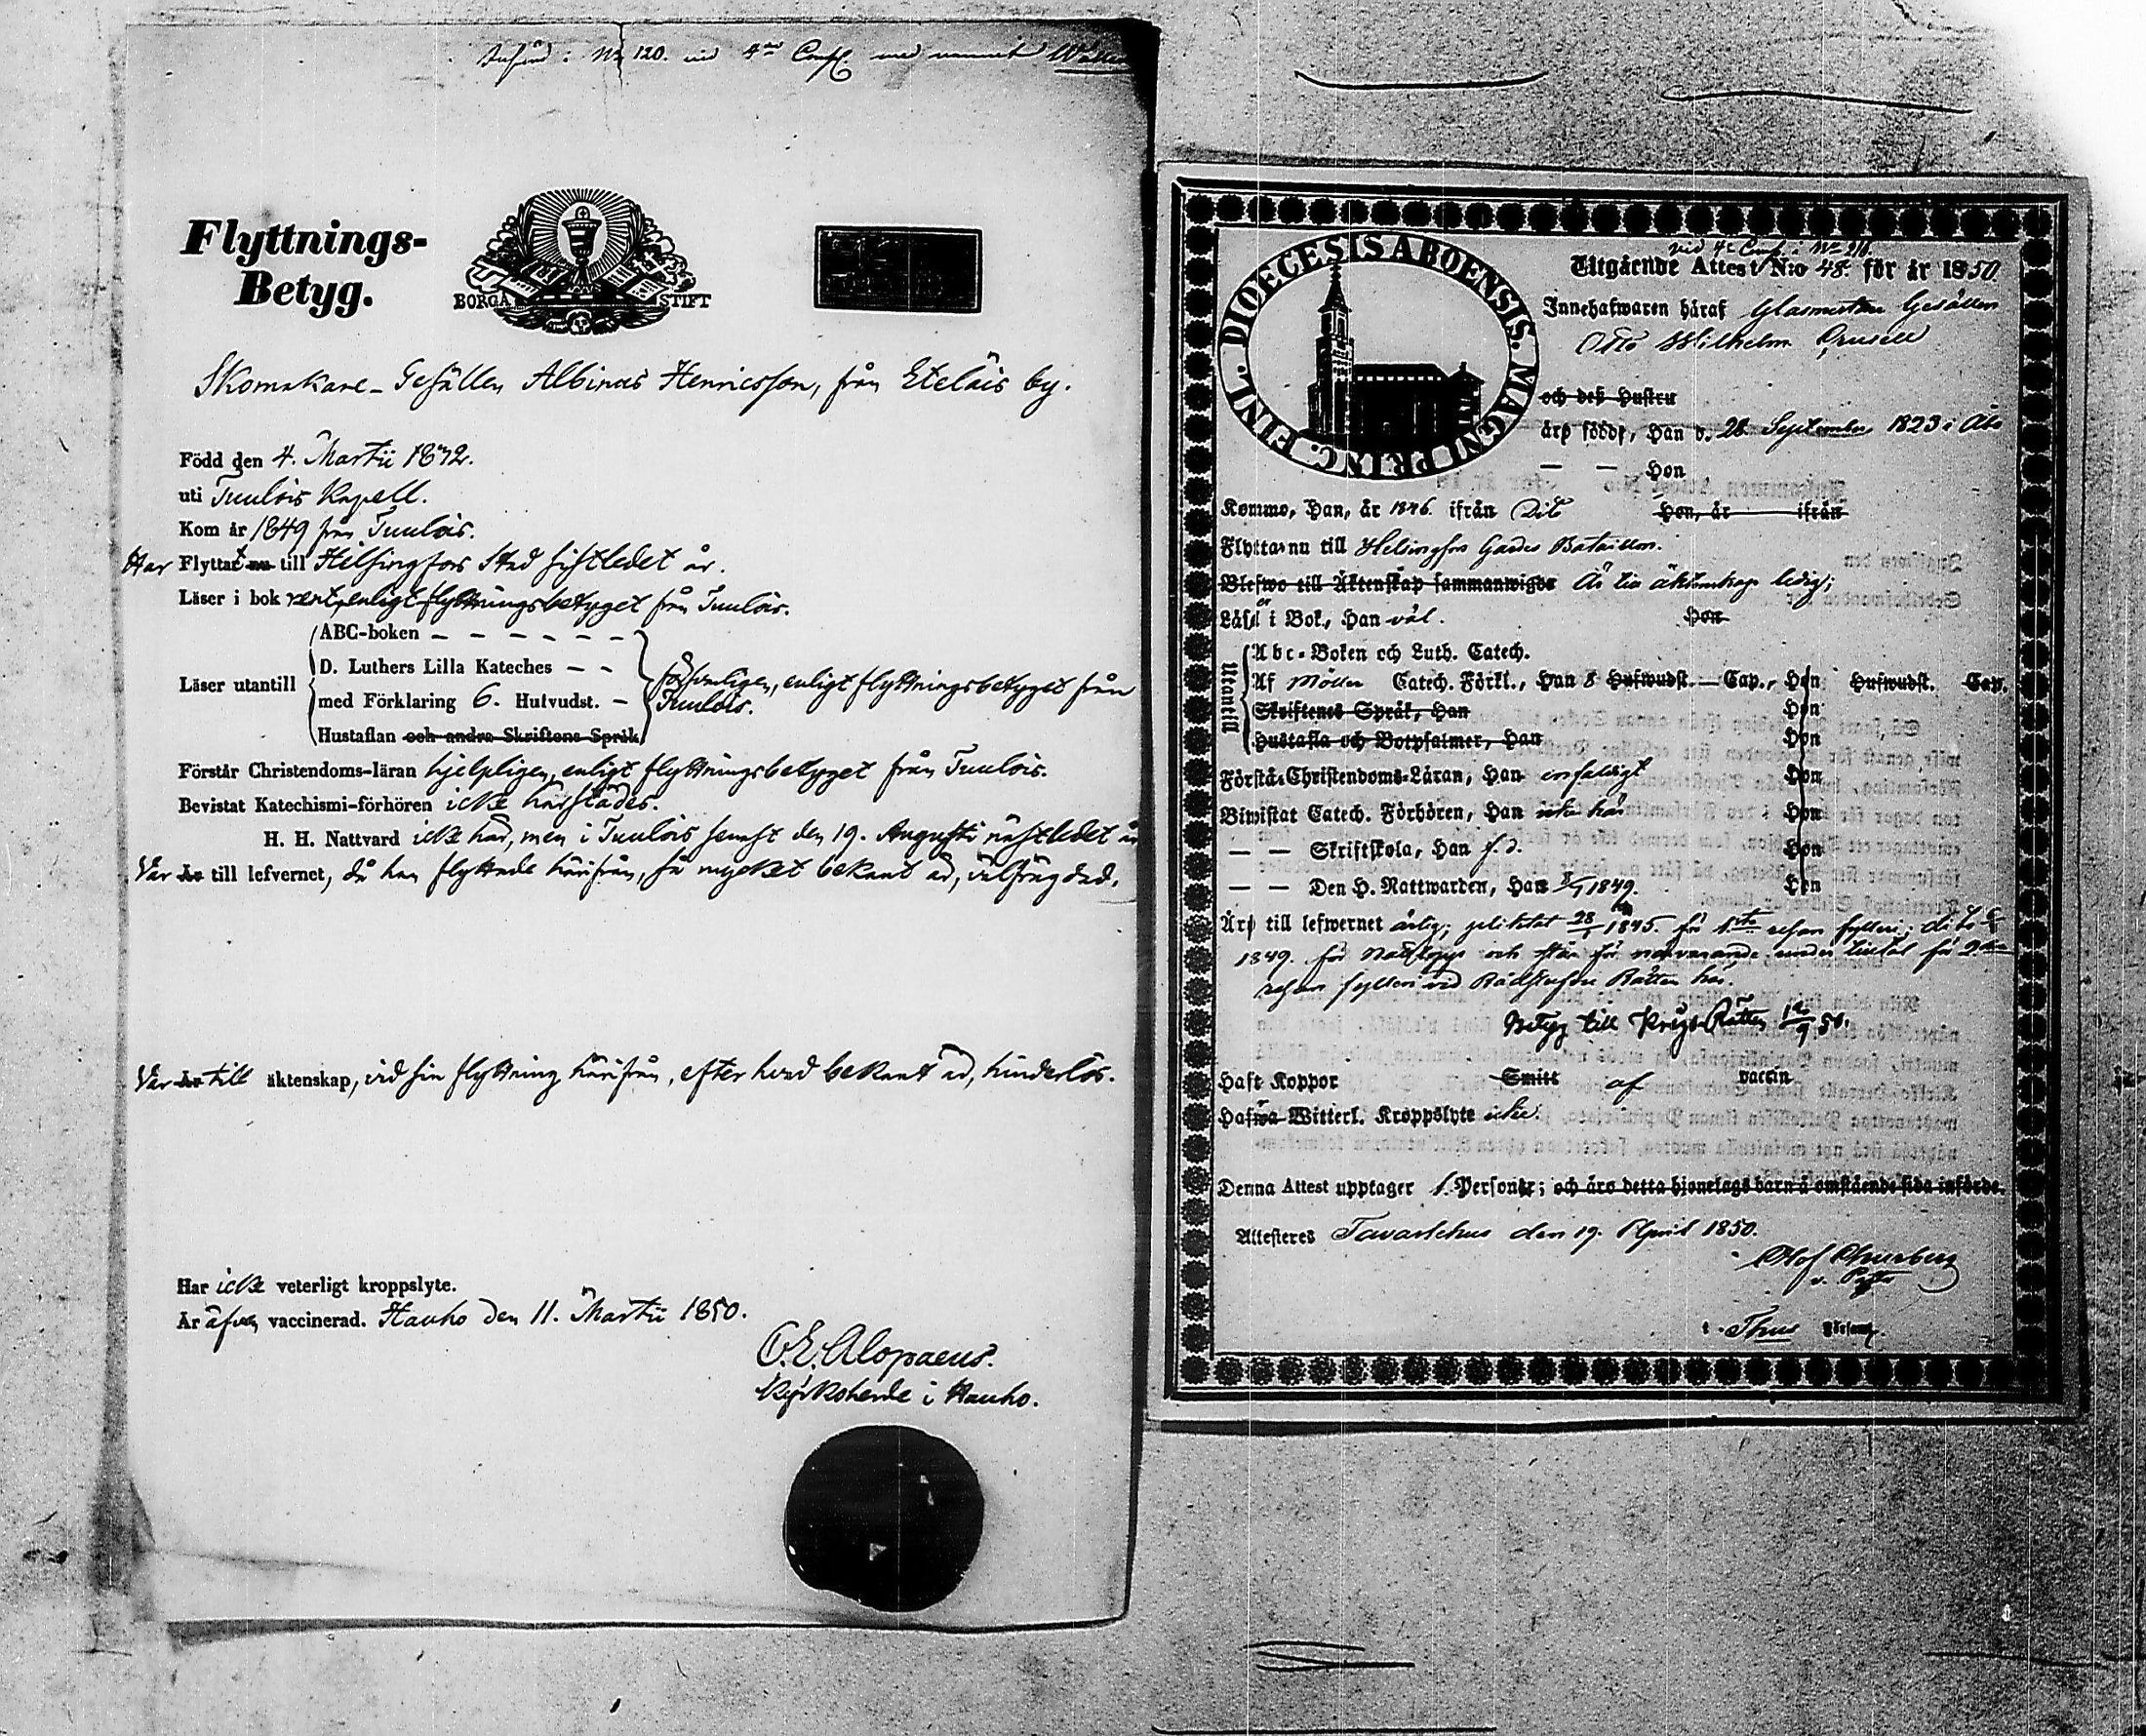 Införd i No 120. vid 4de Comp. med namnet
Flyttnings-
Betyg.
BORGÅ STIFT
Skomakare-Gesällen Albinus Henricsson, från Eteläis by.
Född den 4. Martii 1832.
uti Tuulois Kapell.
Kom år 1849 från Tuulois.
Har Flyttat nu till Helsingfors Stad sistledet år.
Läser i bok rent, enligt flyttningsbetyget från Tuulois.
Läser utantill
ABC-boken – – – – – –
D. Luthers Lilla Kateches – –
med Förklaring 6. Hufvudst. –
Hustaflan och andra Skriftens Språk
försvarligen, enligt flyttningsbetyget från
Tuulois.
Förstår Christendoms-läran hjelpligen, enligt flyttningsbetyget från Tuulois.
Bevistat Katechismi-förhören icke härstädes.
H. H. Nattvard icke här, men i Tuulois senast den 19. Augusti nästledet år
Var Är till lefvernet, då han flyttade härifrån, så mycket bekant är, välfrägdad.
Var Är till äktenskap, vid sin flyttning härifrån, efter hvad bekant är, hinderlös.
Har icke veterligt kroppslyte.
Är äfven vaccinerad. Hauho den 11. Martii 1850.
C.E. Alopaeus.
Kyrkoherde i Hauho.
DIOECESIS ABOENSIS. MAGNI PRINC. FINL.
vid 4e Comp. i No
Utgående Attest N:o 48. för år 1850.
Innehafwaren häraf Glasmästare Gesällen
Otto Wilhelm
och deß Hustru
äro födde, Han d. 28 September 1823 i Åbo
— — Hon
Kommo, Han, år 1846. ifrån Dito Hon, år ifrån
Flytta nu till Helsingfors Gardes Bataillon.
Blefwo till Äktenskap sammanwigde Är till äktenskap ledig;
Läser i Bok, Han väl. Hon
Utantill
Abc-Boken och Luth. Catech.
Af Möller Catech. Förkl., Han 8 Hufwudst. — Cap., Hon Hufwudst. Cap.
Skriftenes Språk, Han Hon
Hustafla och Botpsalmer, Han Hon
Förstå Christendoms-Läran, Han enfaldigt Hon
Biwistat Catech. Förhören, Han icke här Hon
— — Skriftskola, Han f. d. Hon
— — Den H. Nattwarden, Han 1849. Hon
Äro till lefwernet ärlig; pliktat 28 1845. för 1sta resan fylleri; dito
1849. för och står för närvarande under tilltal för 2dra
resan fylleri vid Rådstufvu Rätten här.
Betyg till Krigs Rätten
Haft Koppor Smitt af vaccin
Hafwa Witterl. Kroppslyte icke.
Denna Attest upptager 1. Personer; och äro detta hjonelags barn å omstående sida införde.
Attesteres Tavastehus den 19. April 1850.
Olof
v. Pastor
i Thus Församl.